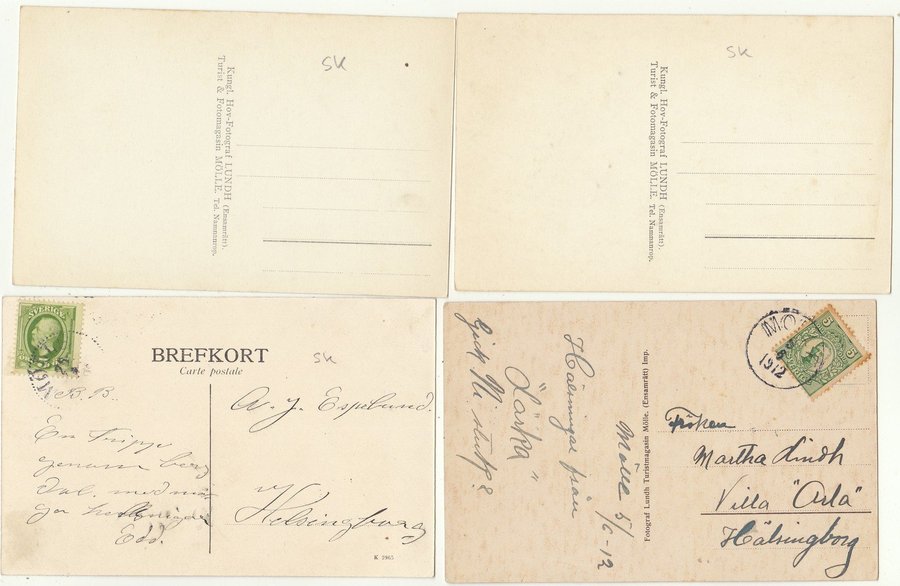 SK
Kungl. Hov-Fotograf LUNDH (Ensamrätt).
Turist & Fotomagasin MÖLLE. Tel. Namnanrop.
SK
Kungl. Hov-Fotograf LUNDH (Ensamrätt).
Turist & Fotomagasin MÖLLE. Tel. Namnanrop.
SVERIGE
BREFKORT
Carte postale
SK
B. B.
En Tripp
genom berg
dal. med
A. J. Esplund.
Helsingborg
K 2965
Mölle 5/6-12
Hälsningar från
"Lärka"
Gick Ni
Fotograf Lundh Turistmagasin Mölle. (Ensamrätt) Imp.
7
1912
5
5
Fröken
Martha Lindh
Villa "Orla"
Hälsingborg